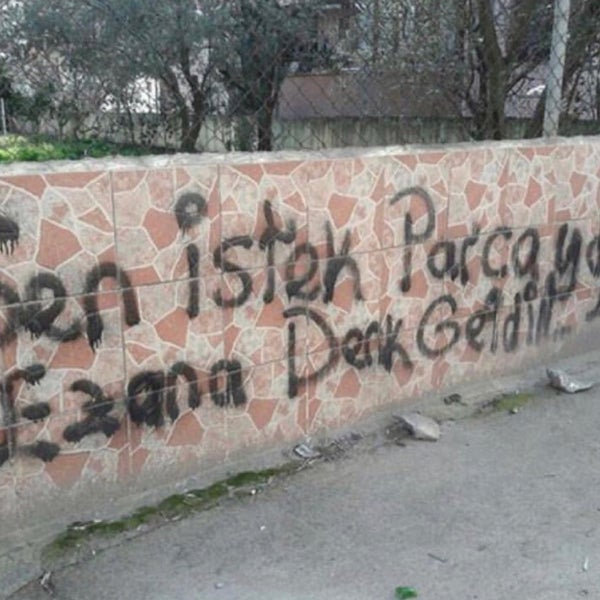 Sen istek Parcayd
Ezana Denk Geldin...